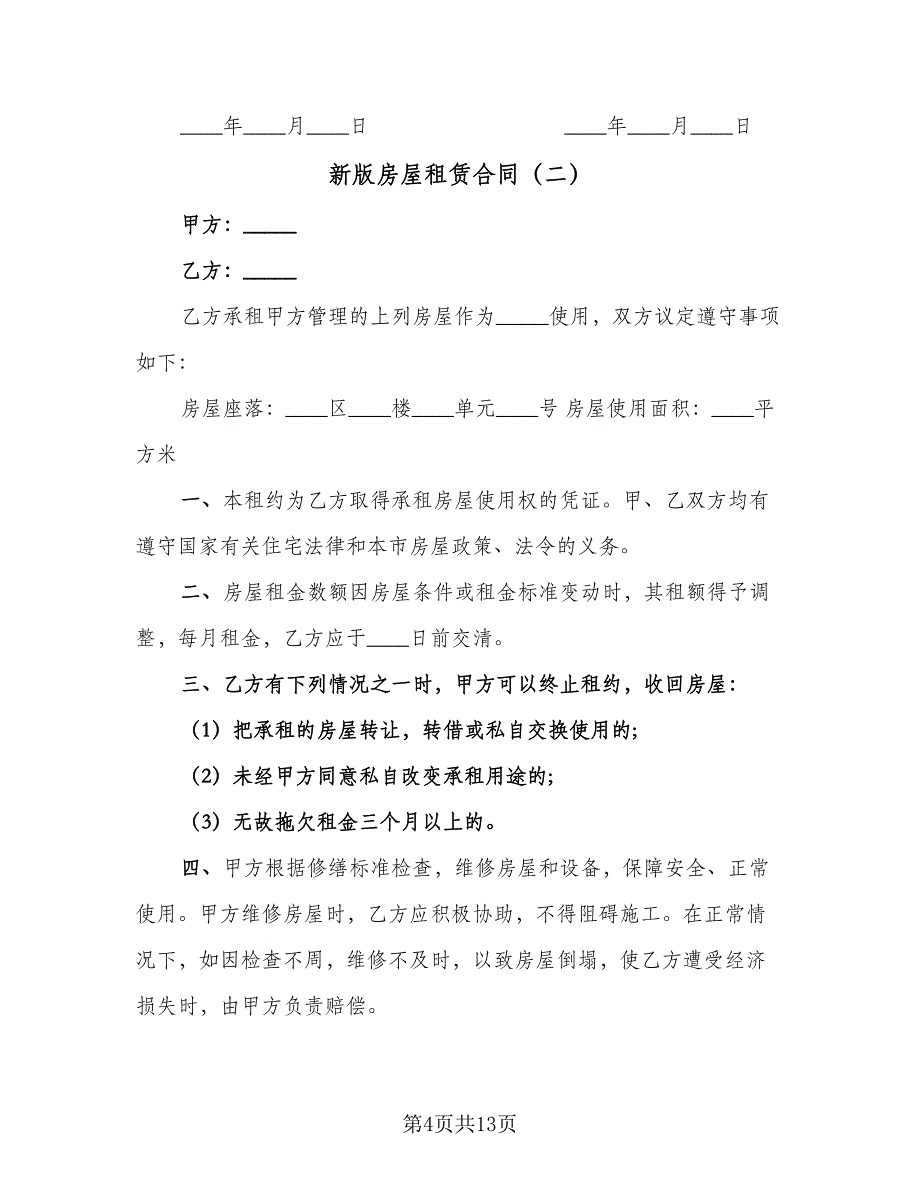 ____年____月____日 ____年____月____日
新版房屋租赁合同（二）
甲方：_____
乙方：_____
乙方承租甲方管理的上列房屋作为_____使用，双方议定遵守事项
如下：
房屋座落：____区____楼____单元____号 房屋使用面积：____平
方米
一、本租约为乙方取得承租房屋使用权的凭证。甲、乙双方均有
遵守国家有关住宅法律和本市房屋政策、法令的义务。
二、房屋租金数额因房屋条件或租金标准变动时，其租额得予调
整，每月租金，乙方应于____日前交清。
三、乙方有下列情况之一时，甲方可以终止租约，收回房屋：
（1）把承租的房屋转让，转借或私自交换使用的；
（2）未经甲方同意私自改变承租用途的；
（3）无故拖欠租金三个月以上的。
四、甲方根据修缮标准检查，维修房屋和设备，保障安全、正常
使用。甲方维修房屋时，乙方应积极协助，不得阻碍施工。在正常情
况下，如因检查不周，维修不及时，以致房屋倒塌，使乙方遭受经济
损失时，由甲方负责赔偿。
第4页共13页